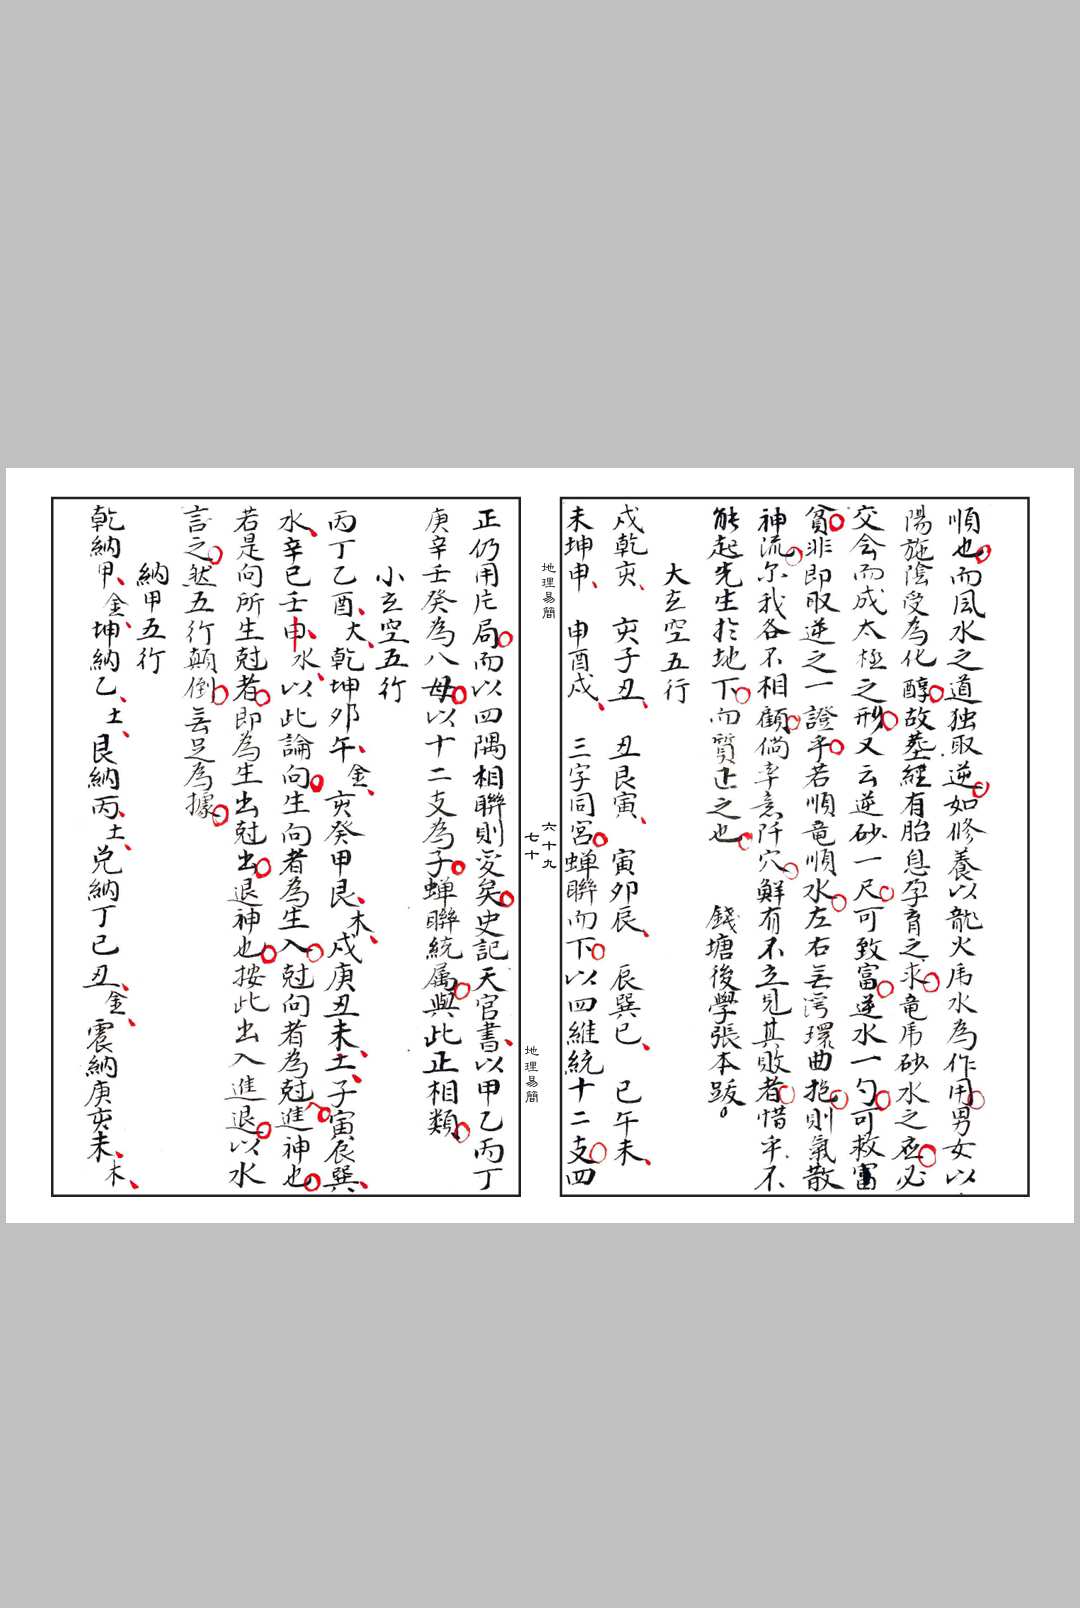 順也而風水之道独取逆如修養以龍火虎水為作用男女以
陽施陰受為化醇故葬經有胎息孕育之求竜虎砂水之应必
交会而成太極之形又云逆砂一尺可致富逆水一勺可救
貧非即取逆之一證乎若順竜順水左右无湾環曲抱則氣散
神流尔我各不相顧倘率意阡穴鮮有不立見其敗者惜乎不
能起先生於地下而質正之也 錢塘後學張本跋
大玄空五行
戌乾亥、 亥子丑、 丑艮寅、 寅卯辰、 辰巽巳、 巳午未、
未坤申、 申酉戌、 三字同宮蝉聨而下以四維統十二支四
地理易簡
六十九
七十
地理易簡
正仍用片局而以四隅相聨則変矣史記天官書、以甲乙丙丁
庚辛壬癸為八母以十二支為子蝉聨統属與此正相類
小玄空五行
丙丁乙酉、大、乾坤夘午、金、亥癸甲艮、木、戌庚丑未、土、子寅辰巽、
水、辛巳壬申、水、以此論向生向者為生入尅向者為尅進神也
若是向所生尅者即為生出尅出退神也按此出入進退以水
言之然五行顛倒无足為據
納甲五行
乾納甲、金、坤納乙、土、艮納丙、土、兑納丁巳丑、金、震納庚亥未、木、